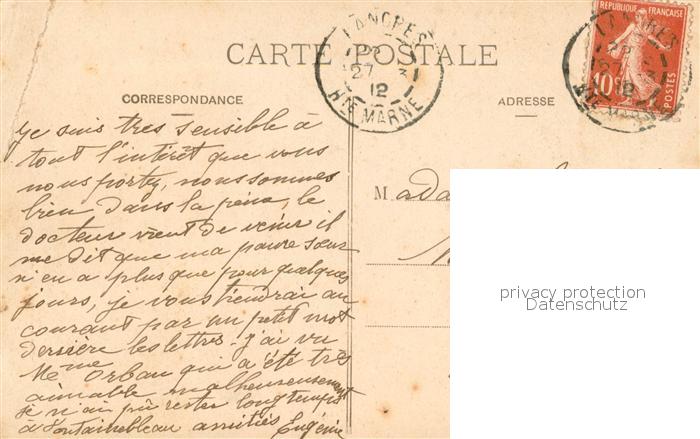 CARTE POSTALE
LANGRES
27 3
12
Hte MARNE
REPUBLIQUE FRANÇAISE
10
POSTES
LANGRES
12
Hte MARNE
CORRESPONDANCE
ADRESSE
Je suis très sensible à
tout l'intérêt que vous
nous portez, nous sommes
bien dans la peine, le
docteur vient de venir il
me dit que ma pauvre sœur
n'en a plus que pour quelques
jours, je vous tiendrai au
courant par un petit mot
derrière les lettres. J'ai vu
Mme Orbau qui a été très
aimable malheureusement
je n'ai pu rester longtemps
à Fontainebleau amitiés Eugénie
Mada
privacy protection
Datenschutz